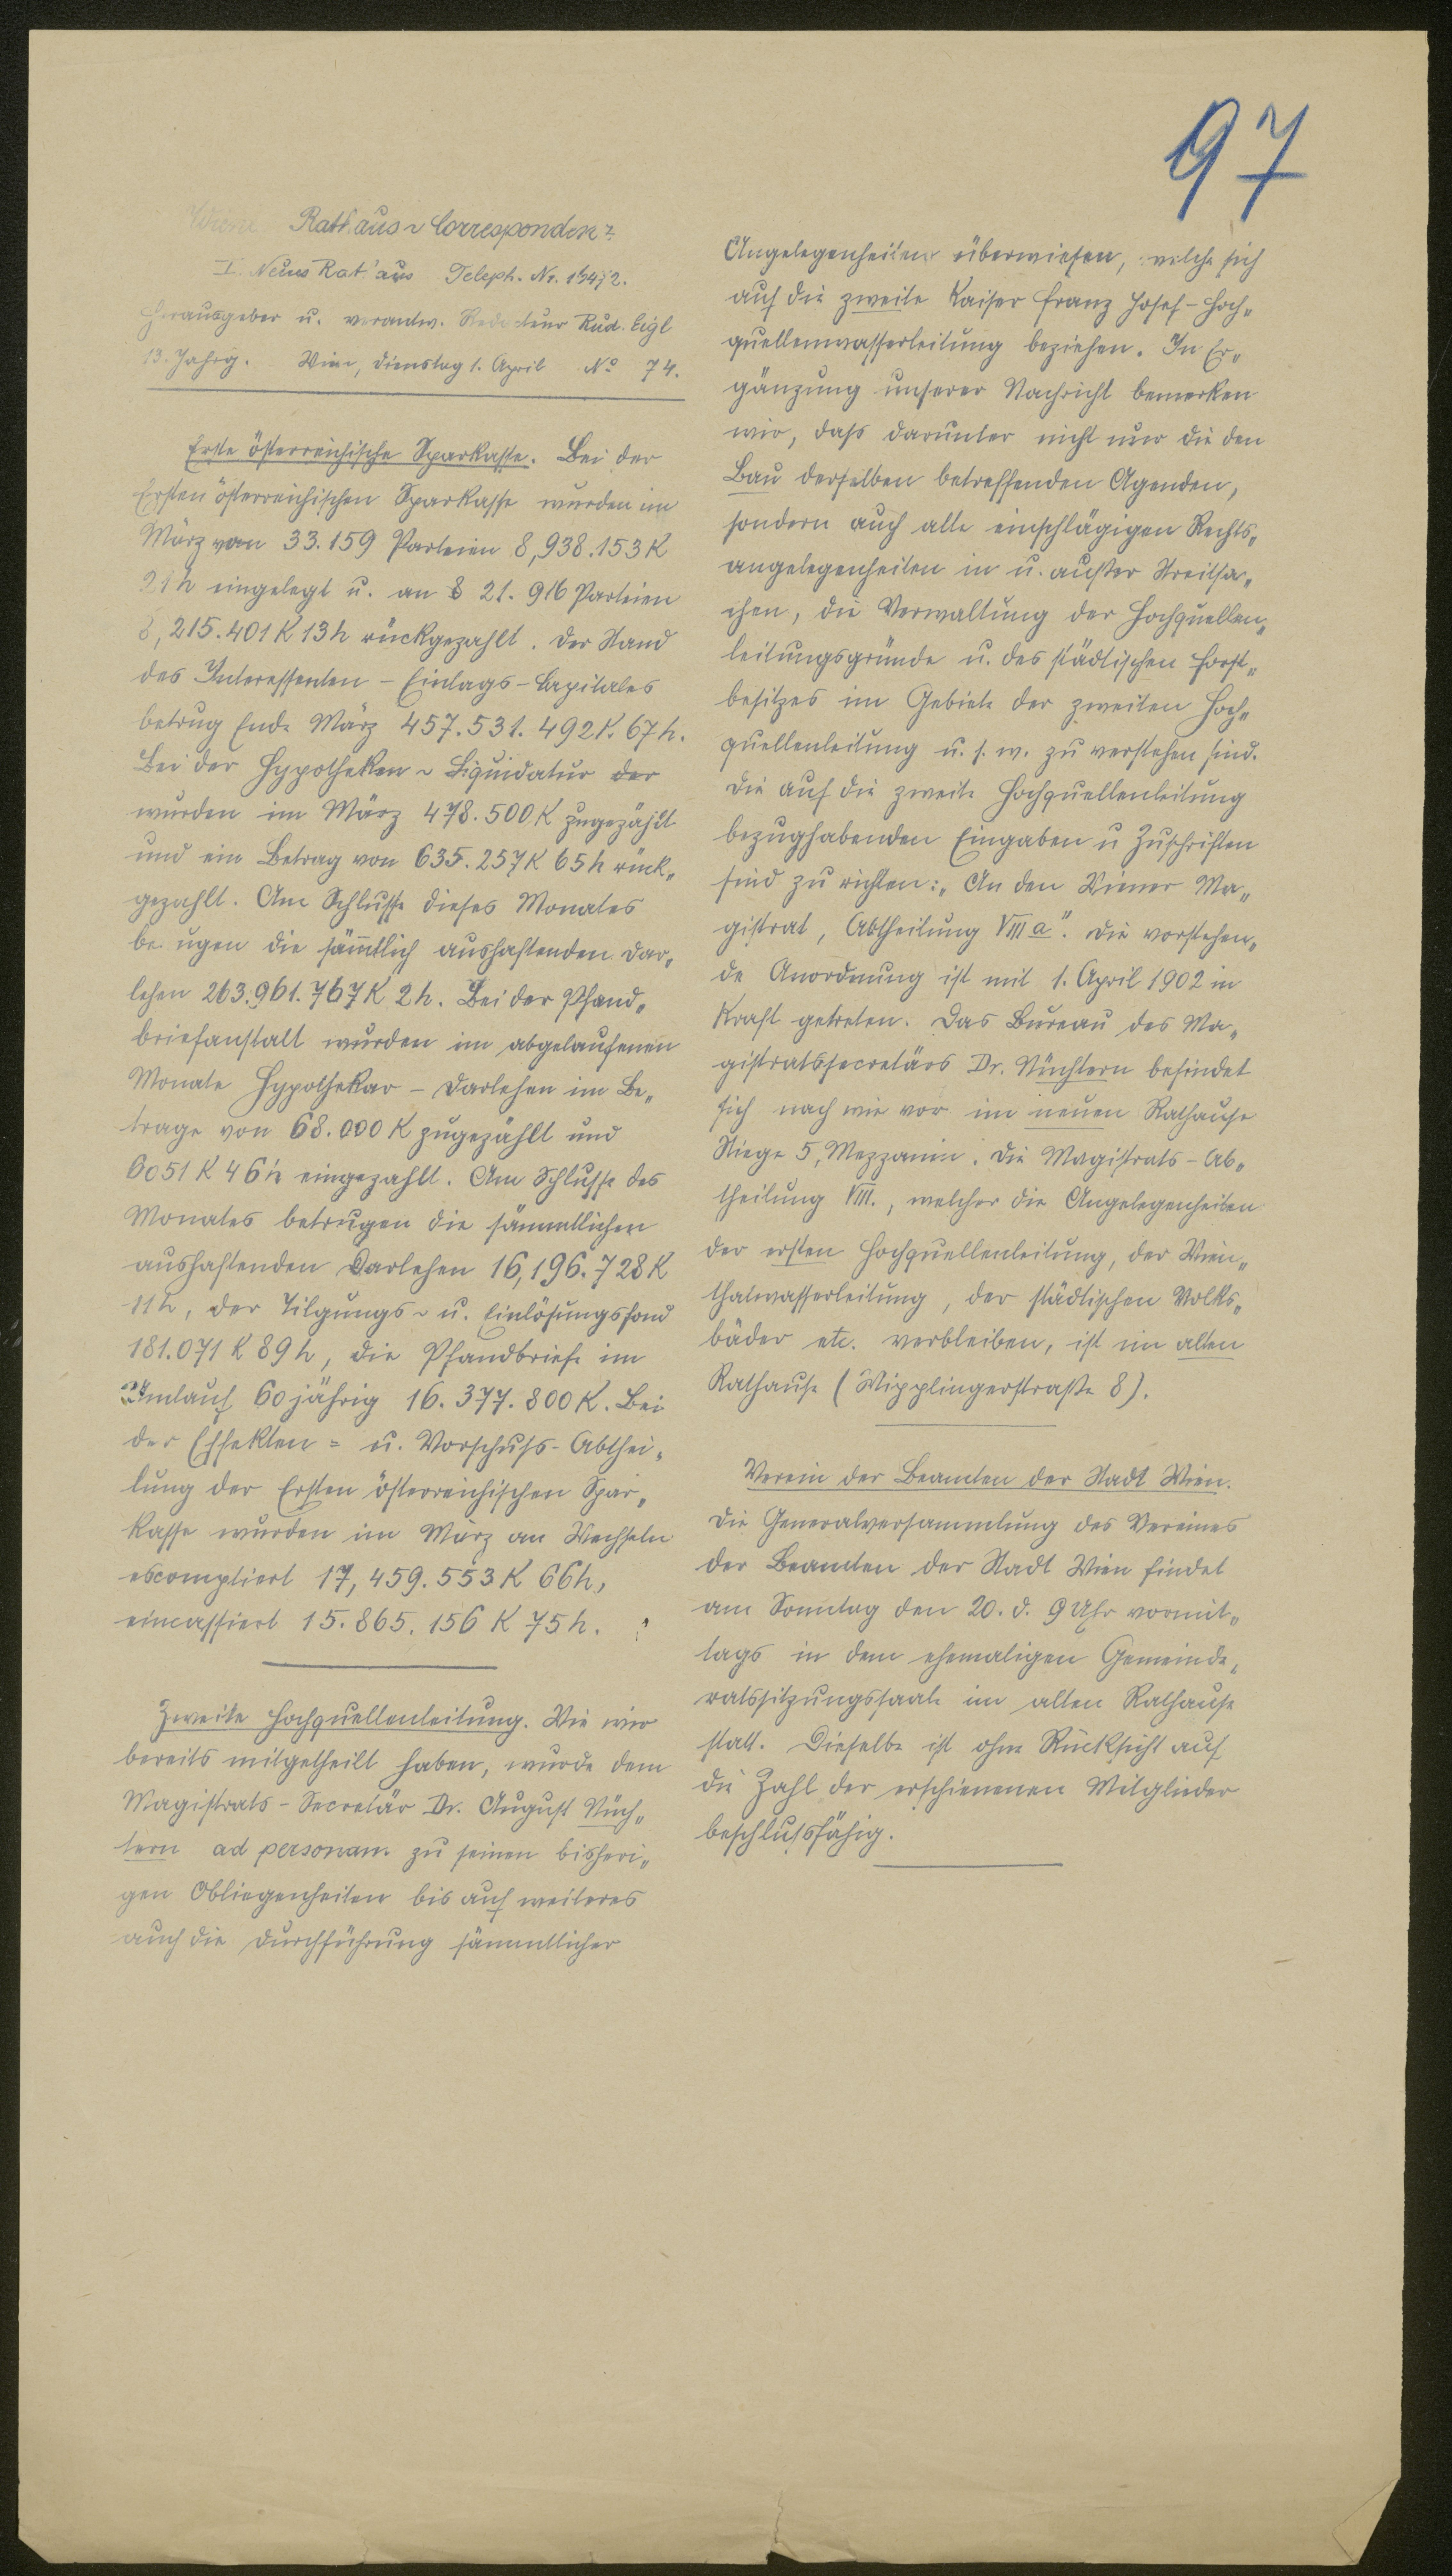 97
Wiene Rathaus-Correspondenz
I. Neues Rathaus Teleph. Nr. 13472.
Herausgeber u. verantw. Redacteur Rud. Eigl
13. Jahrg. Wien, Dienstag 1. April No 74.
Erste österreichische Sparkasse. Bei der
Ersten österreichischen Sparkasse wurden im
März von 33.159 Parteien 8,938.153 K
h eingelegt u. an 21.916 Parteien
8,215.401 K 13 h rückgezahlt. Der Stand
des Interessenten-Einlags-Capitales
betrug Ende März 457.531.492 K. 67 h.
Bei der Hypotheken-Liquidatur der
wurden im März 478.500 K zugezählt
und ein Betrag von 635.257 K 65 h rück„
gezahlt. Am Schlusse dieses Monates
be ugen die sämtlich aushaftenden Dar„
lehen 263.961.767 K 2 h. Bei der Pfand„
briefanstalt wurden im abgelaufenen
Monate Hypothekar-Darlehen im Be„
trage von 68.000 K zugezählt und
6051 K 46 h eingezahlt. Am Schlusse des
Monates betrugen die sämmtlichen
aushaftenden Darlehen 16,196.728 K
11 h, der Tilgungs- u. Einlösungsfond
181.071 K 89 h, die Pfandbriefe im
Umlauf 60 jährig 16.377.800 K. Bei
der Effekten= u. Vorschuß-Abthei„
lung der Ersten österreichischen Spar„
kasse wurden im März an Wechseln
escomptiert 17,459.553 K 66 h,
eincassiert 15.865.156 K 75 h.
Zweite Hochquellenleitung. Wie wir
bereits mitgetheilt haben, wurde dem
Magistrats-Secretär Dr. August Nüch„
tern ad personam zu seinen bisheri„
gen Obliegenheiten bis auf weiteres
auch die Durchführung sämmtlicher
Angelegenheiten überwiesen, welche sich
auf die zweite Kaiser Franz Josef-Hoch„
quellenwasserleitung beziehen. In Er„
gänzung unserer Nachricht bemerken
wir, daß darunter nicht nur die den
Bau derselben betreffenden Agenden,
sondern auch alle einschlägigen Rechts„
angelegenheiten in u. außer Streitsa„
chen, die Verwaltung der Hochquellen„
leitungsgründe u. des städtischen Forst„
besitzes im Gebiete der zweiten Hoch„
quellenleitung u. s. w. zu verstehen sind.
Die auf die zweite Hochquellenleitung
bezughabenden Eingaben u Zuschriften
sind zu richten: „An den Wiener Ma„
gistrat, Abtheilung VIII a". Die vorstehen„
de Anordnung ist mit 1. April 1902 in
Kraft getreten. Das Bureau des Ma„
gistratssecretärs Dr. Nüchtern befindet
sich nach wie vor im neuen Rathause
Stiege 5, Mezzanin. Die Magistrats-Ab„
theilung VIII., welcher die Angelegenheiten
der ersten Hochquellenleitung, der Wien„
thalwasserleitung, der städtischen Volks„
bäder etc. verbleiben, ist im alten
Rathause (Wipplingerstraße 8).
Verein der Beamten der Stadt Wien.
Die Generalversammlung des Vereines
der Beamten der Stadt Wien findet
am Sonntag den 20. d. 9 Uhr vormit„
tags in dem ehemaligen Gemeinde„
ratssitzungssaale im alten Rathause
statt. Dieselbe ist ohne Rücksicht auf
die Zahl der erschienenen Mitglieder
beschlußfähig.